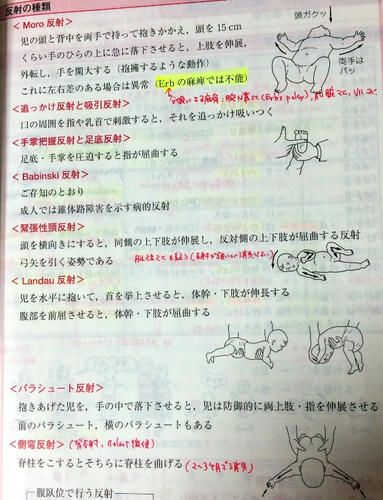 反射の種類
＜Moro 反射＞
児の頭と背中を両手で持って抱きかかえ，頭を 15 cm
くらい手のひらの上に急に落下させると，上肢を伸展，
外転し，手を開大する（抱擁するような動作）
これに左右差のある場合は異常（Erb の麻痺では不能）
頭ガクッ
両手は
パッ
＜追っかけ反射と吸引反射＞
口の周囲を指や乳首で刺激すると，それを追っかけ吸いつく
＜手掌把握反射と足底反射＞
足底・手掌を圧迫すると指が屈曲する
＜Babinski 反射＞
ご存知のとおり
成人では錐体路障害を示す病的反射
＜緊張性頸反射＞
頭を横向きにすると，同側の上下肢が伸展し，反対側の上下肢が屈曲する反射
弓矢を引く姿勢である
＜Landau 反射＞
児を水平に抱いて，首を挙上させると，体幹・下肢が伸長する
腹部を前屈させると，体幹・下肢が屈曲する
＜パラシュート反射＞
抱きあげた児を，手の中で落下させると，児は防御的に両上肢・指を伸展させる
前のパラシュート，横のパラシュートもある
＜側彎反射＞
脊柱をこするとそちらに脊柱を曲げる（2〜3ヶ月で消失）
腹臥位で行う反射